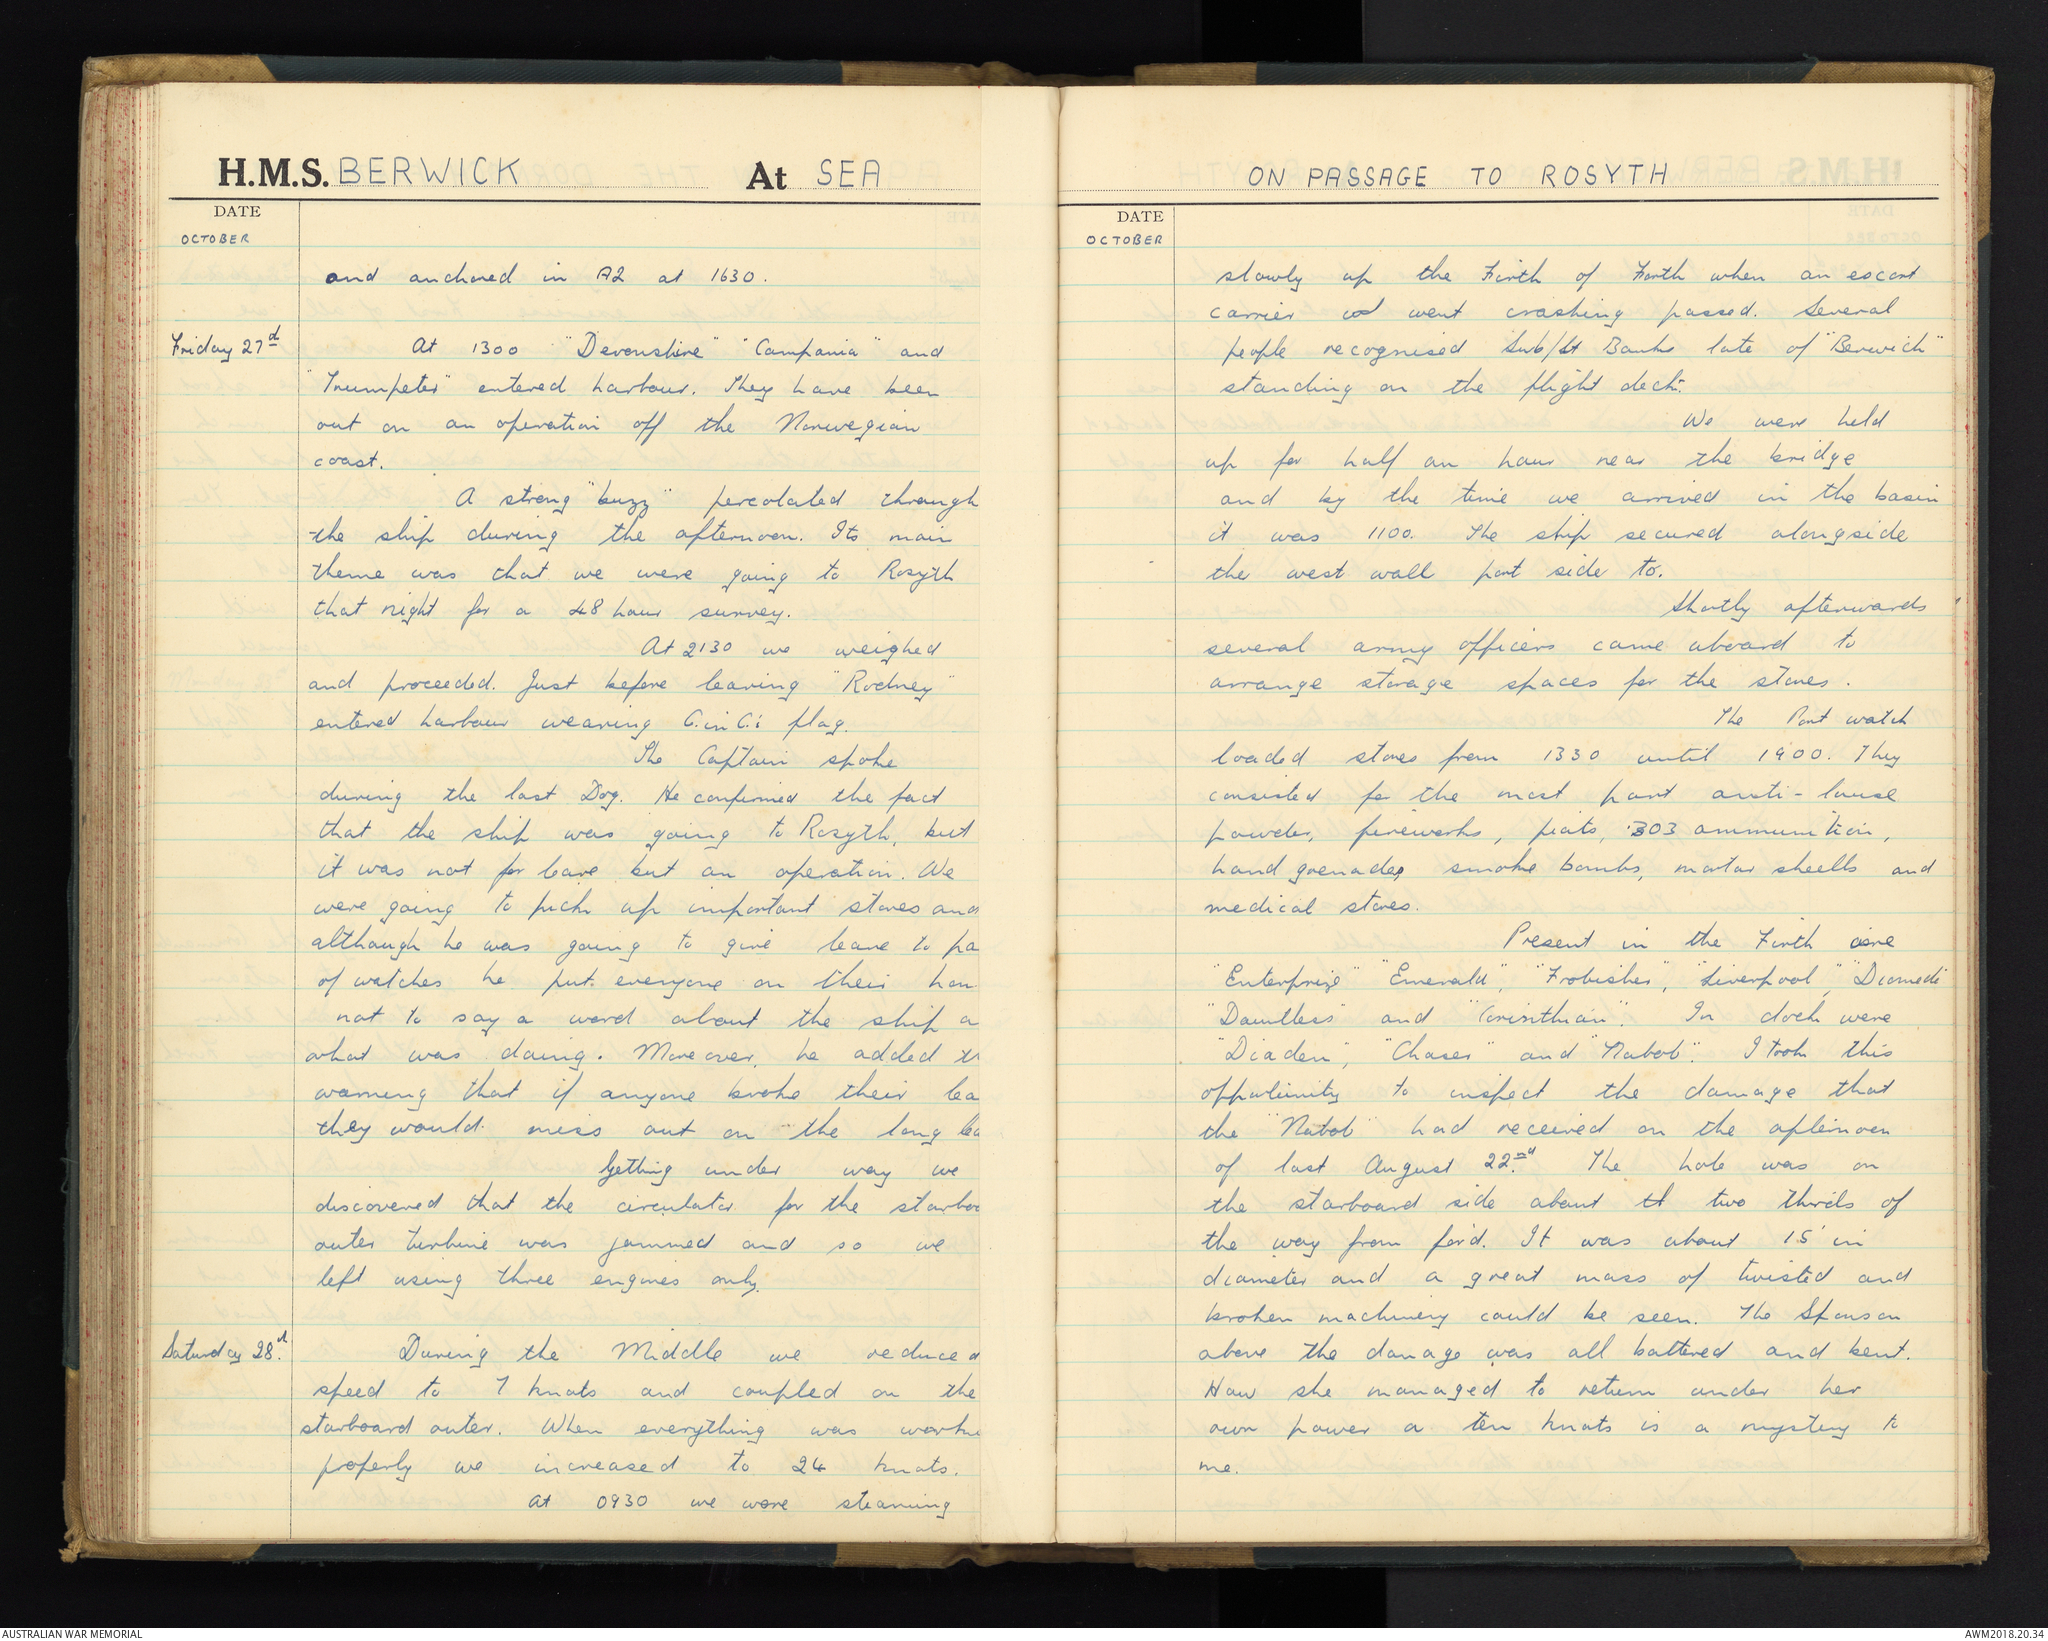 H.M.S. BERWICK At SEA
DATE
OCTOBER
and anchored in A2 at 1630.
Friday 27d At 1300 "Devonshire" "Campania" and
"Trumpeter" entered harbour. They have been
out on an operation off the Norwegian
coast.
A strong "buzz" percolated through
the ship during the afternoon. Its main
theme was that we were going to Rosyth
that night for a 48 hour survey.
At 2130 we weighed
and proceeded. Just before leaving "Rodney"
entered harbour wearing C.in C.'s flag.
The Captain spoke
during the last Dog. He confirmed the fact
that the ship was going to Rosyth, but
it was not for leave but an operation. We
were going to pick up important stores and
although he was going to give leave to pa
of watches he put everyone on their hon
not to say a word about the ship o
what was doing. Moreover, he added th
warning that if anyone broke their lea
they would miss out on the long lea
Getting under way we
discovered that the circulator for the starboa
outer turbine was jammed and so we
left using three engines only.
Saturday 28th. During the Middle we reduced
speed to 7 knots and coupled on the
starboard outer. When everything was workin
properly we increased to 24 knots.
At 0930 we were steaming
ON PASSAGE TO ROSYTH
DATE
OCTOBER
slowly up the Firth of Forth when an escort
carrier went crashing passed. Several
people recognised Sub/Lt Banks late of "Berwick"
standing on the flight deck.
We were held
up for half an hour near the bridge
and by the time we arrived in the basin
it was 1100. The ship secured alongside
the west wall port side to.
Shortly afterwards
several army officers came aboard to
arrange storage spaces for the stores.
The Port watch
loaded stores from 1330 until 1900. They
consisted for the most part anti-louse
powder, fireworks, piats, .303 ammunition,
hand grenades, smoke bombs, mortar shells and
medical stores.
Present in the Firth are
"Enterprize" "Emerald", "Frobisher", "Liverpool", "Diomede"
"Dauntless" and "Corinthian". In dock were
"Diadem", "Chaser" and "Nabob". I took this
opportunity to inspect the damage that
the "Nabob" had received on the afternoon
of last August 22nd. The hole was on
the starboard side about two thirds of
the way from for'd. It was about 15' in
diameter and a great mass of twisted and
broken machinery could be seen. The Sponson
above the damage was all battered and bent.
How she managed to return under her
own power a ten knots is a mystery to
me.
AUSTRALIAN WAR MEMORIAL
AWM2018.20.34